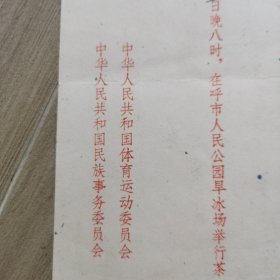 日晚八时，在呼市人民公园旱冰场举行茶
中华人民共和国体育运动委员会
中华人民共和国民族事务委员会